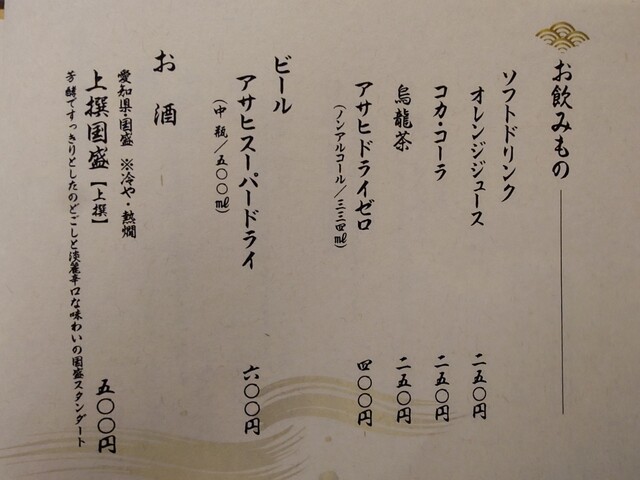 お飲みもの
ソフトドリンク
オレンジジュース 二五〇円
コカ・コーラ 二五〇円
烏龍茶 二五〇円
アサヒドライゼロ 四〇〇円
(ノンアルコール/三三四㎖)
ビール
アサヒスーパードライ 六〇〇円
(中瓶/五〇〇㎖)
お酒
愛知県・国盛 ※冷や・熱燗
上撰国盛【上撰】 五〇〇円
芳醇ですっきりとしたのどごしと淡麗辛口な味わいの国盛スタンダート